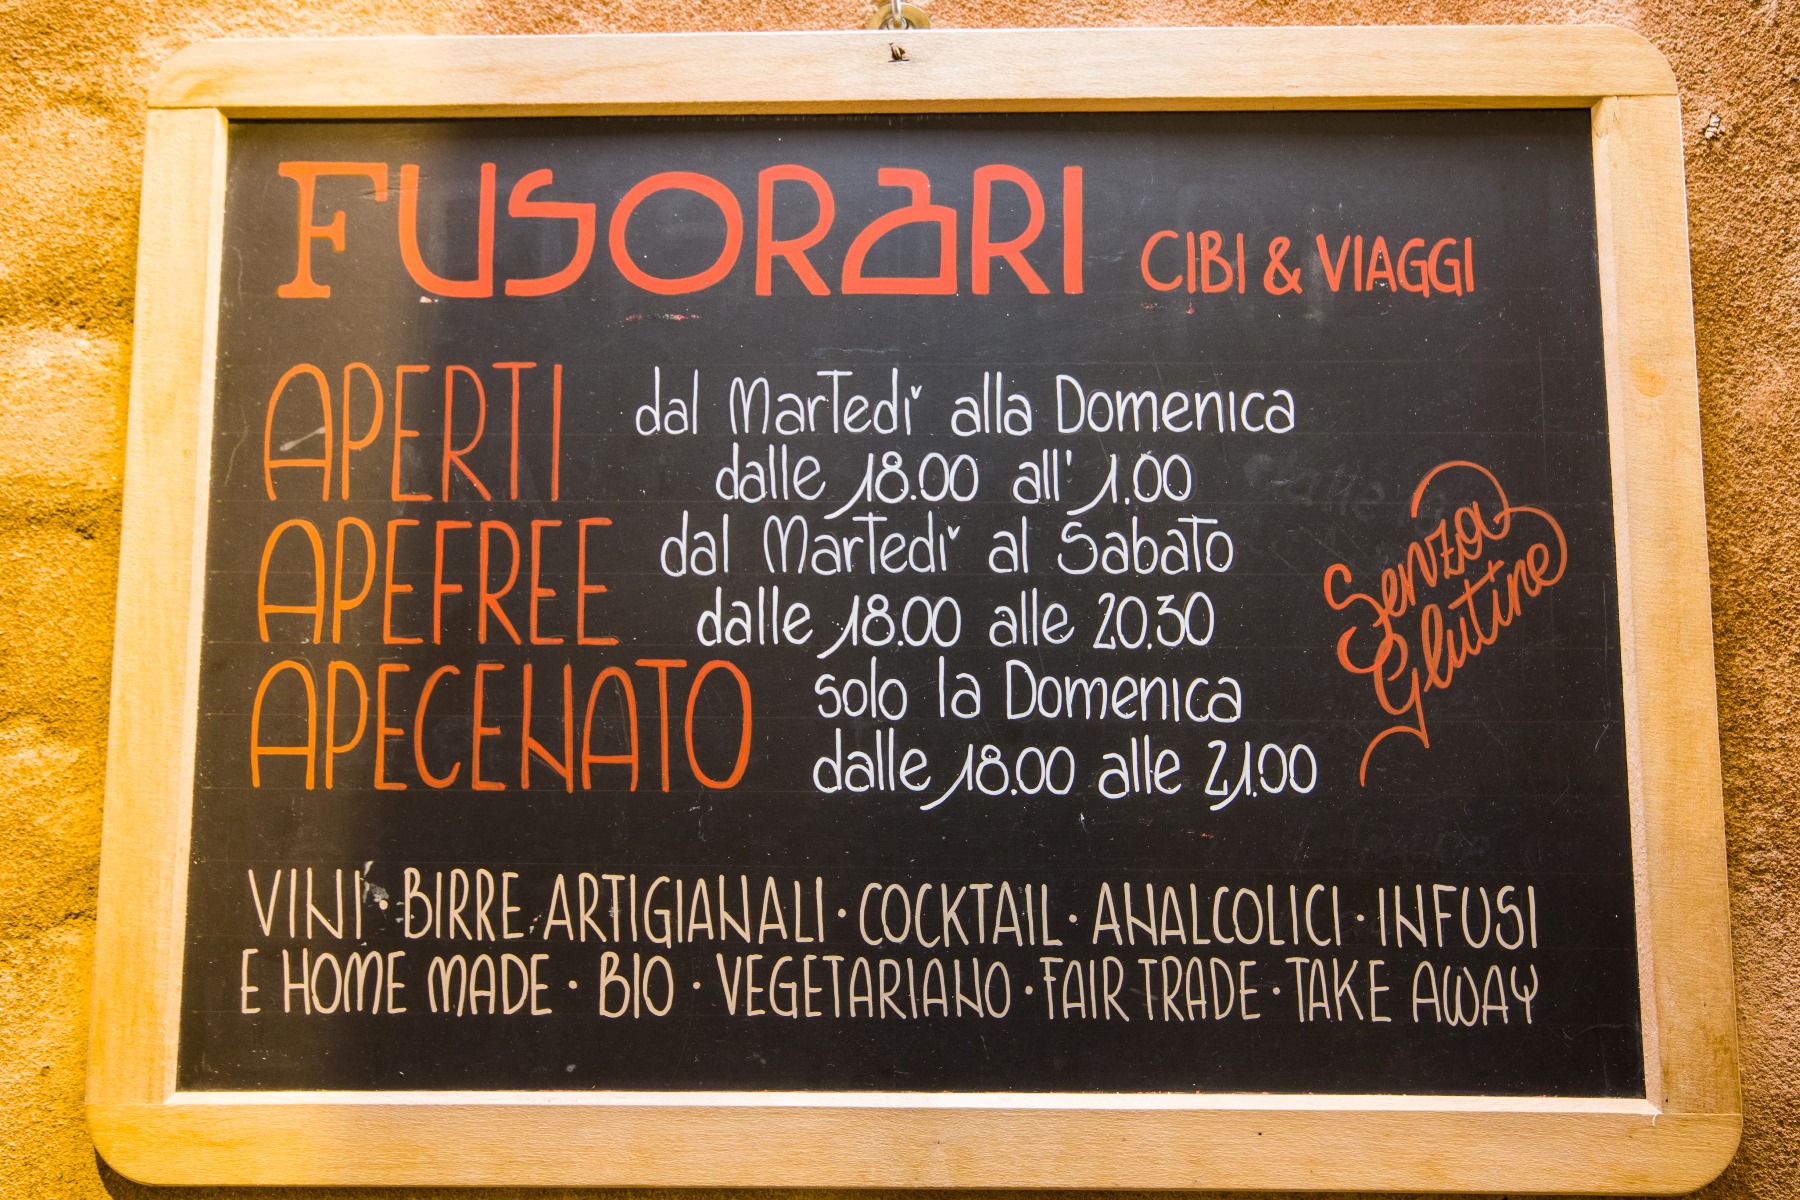 FUSORARI CIBI & VIAGGI
APERTI dal Martedì alla Domenica
dalle 18.00 all' 1.00
APEFREE dal Martedì al Sabato
dalle 18.00 alle 20.30
APECENATO solo la Domenica
dalle 18.00 alle 21.00
Senza
Glutine
VINI · BIRRE ARTIGIANALI · COCKTAIL · ANALCOLICI · INFUSI
E HOME MADE · BIO · VEGETARIANO · FAIR TRADE · TAKE AWAY